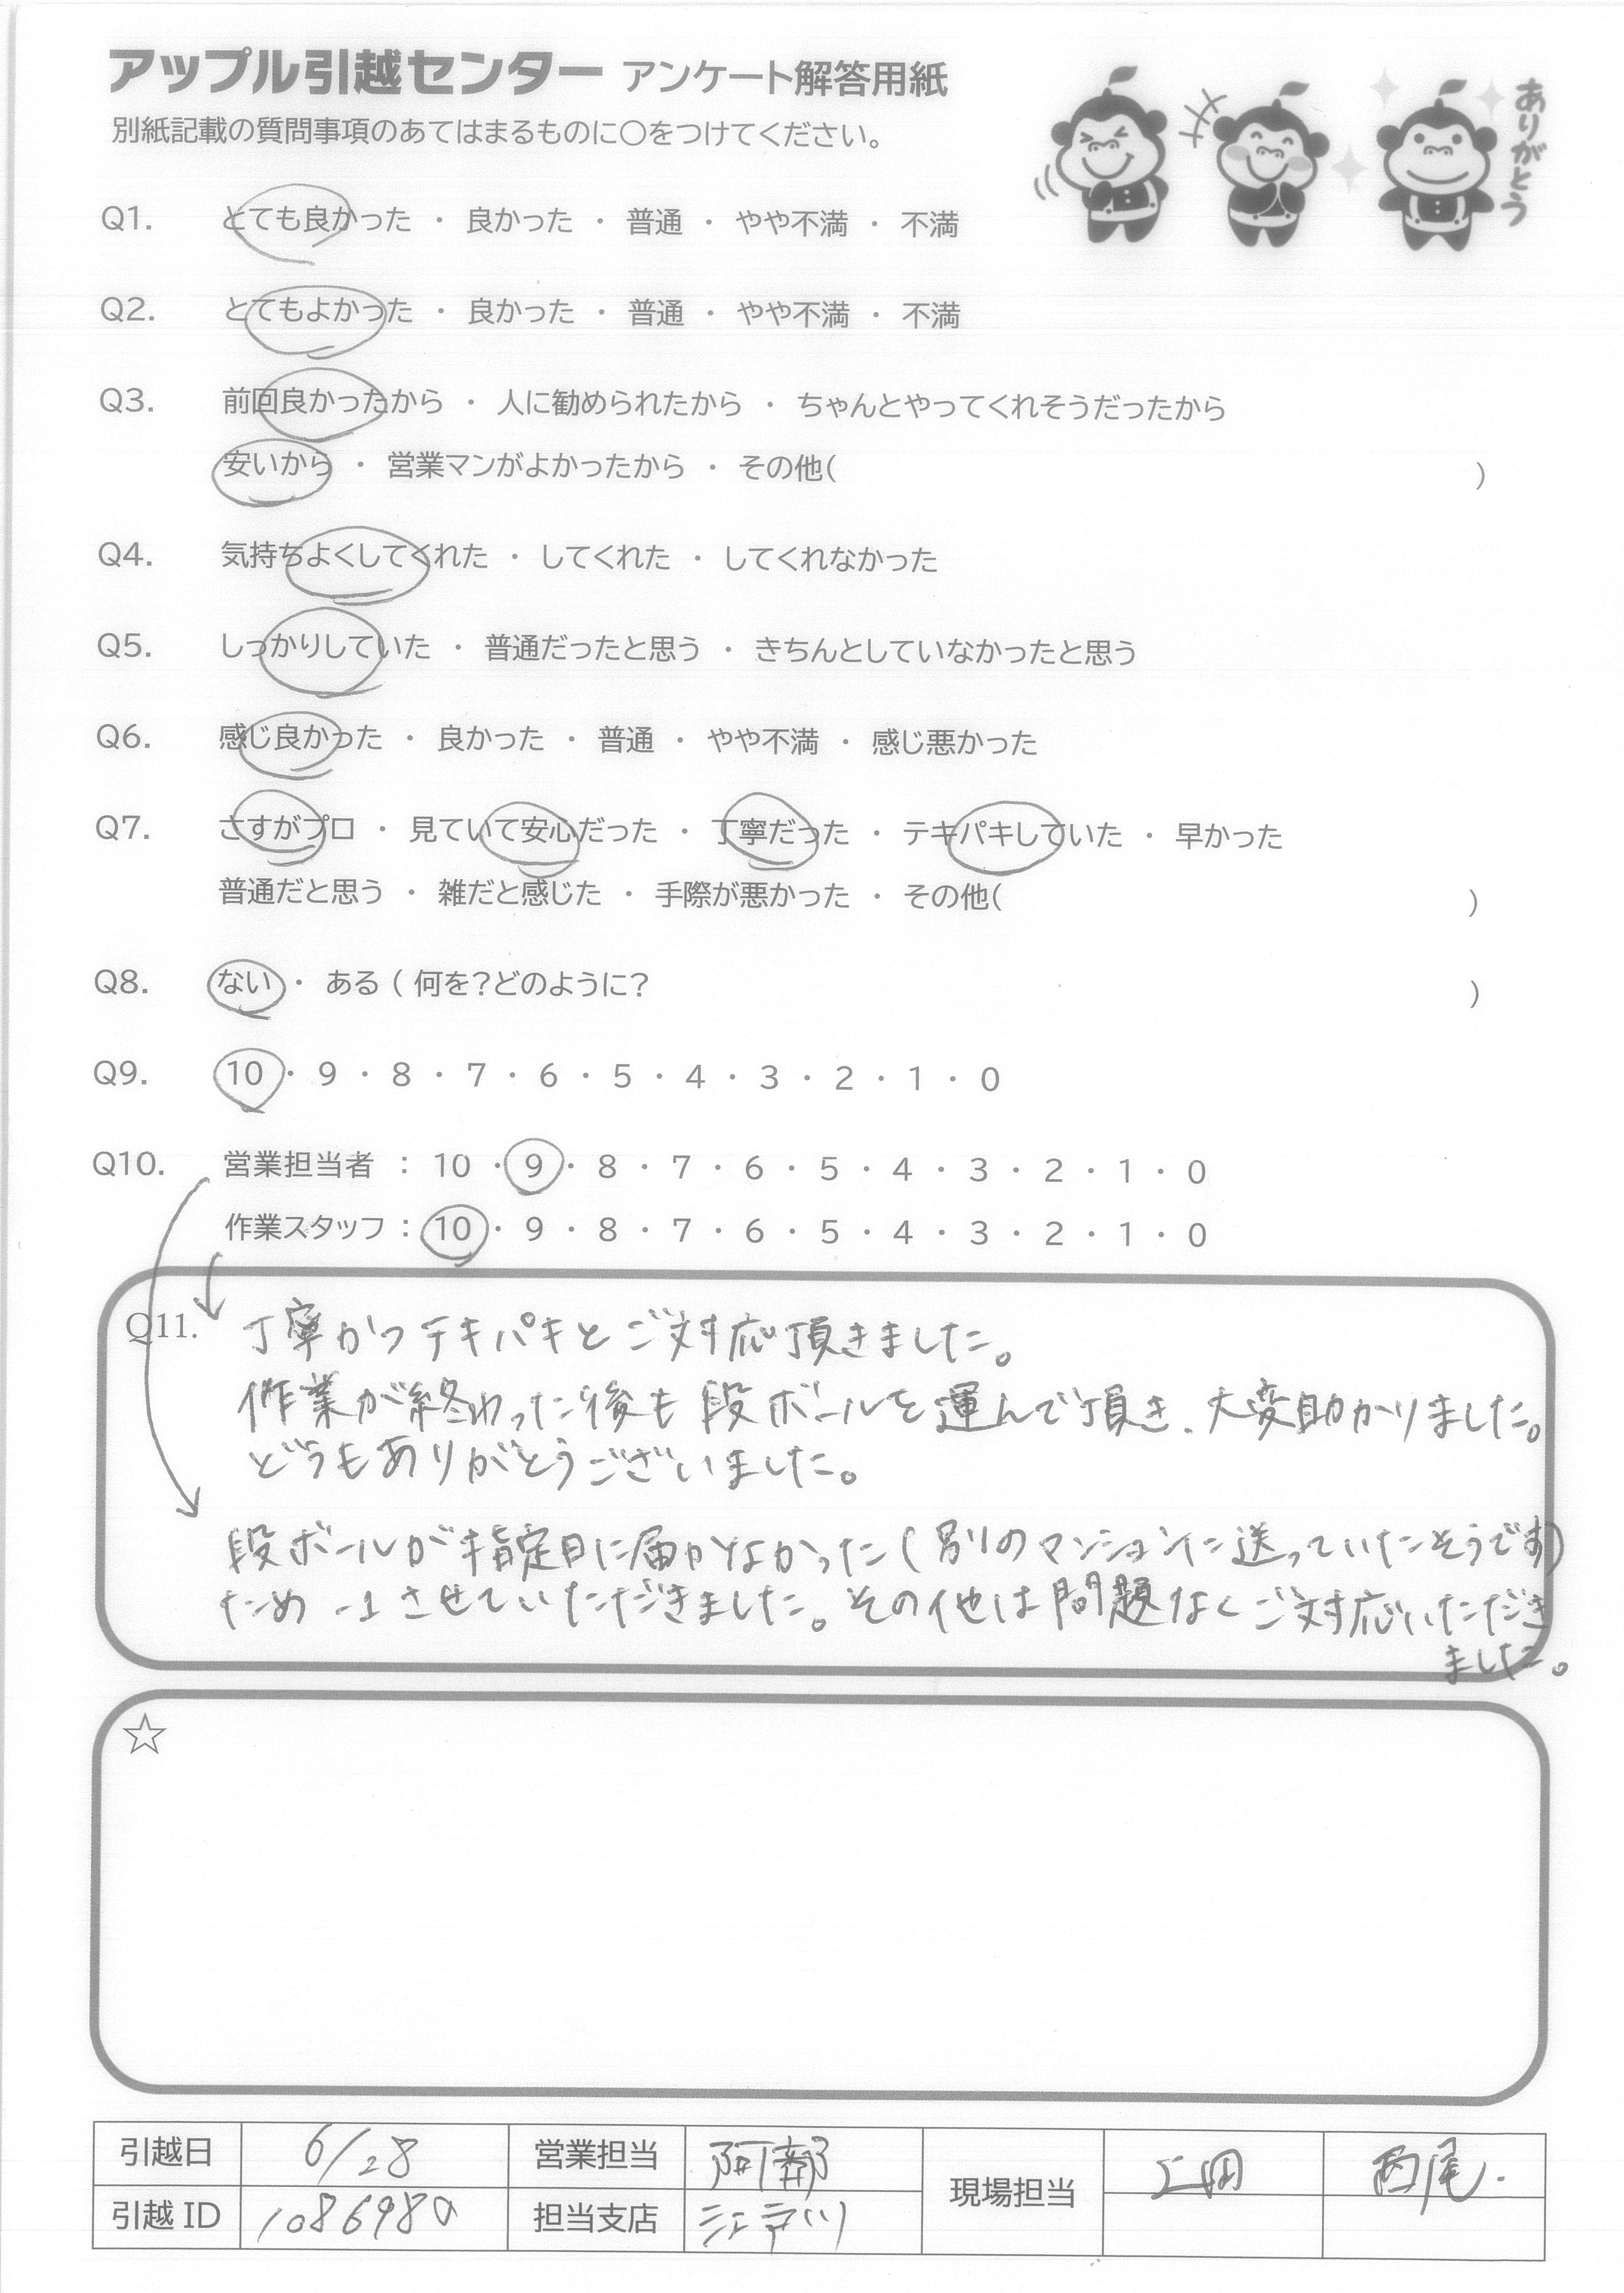 アップル引越センター アンケート解答用紙
別紙記載の質問事項のあてはまるものに○をつけてください。
ありがとう
Q1. とても良かった ・ 良かった ・ 普通 ・ やや不満 ・ 不満
Q2. とてもよかった ・ 良かった ・ 普通 ・ やや不満 ・ 不満
Q3. 前回良かったから ・ 人に勧められたから ・ ちゃんとやってくれそうだったから
安いから ・ 営業マンがよかったから ・ その他( )
Q4. 気持ちよくしてくれた ・ してくれた ・ してくれなかった
Q5. しっかりしていた ・ 普通だったと思う ・ きちんとしていなかったと思う
Q6. 感じ良かった ・ 良かった ・ 普通 ・ やや不満 ・ 感じ悪かった
Q7. さすがプロ ・ 見ていて安心だった ・ 丁寧だった ・ テキパキしていた ・ 早かった
普通だと思う ・ 雑だと感じた ・ 手際が悪かった ・ その他( )
Q8. ない ・ ある ( 何を?どのように? )
Q9. 10 ・ 9 ・ 8 ・ 7 ・ 6 ・ 5 ・ 4 ・ 3 ・ 2 ・ 1 ・ 0
Q10. 営業担当者 : 10 ・ 9 ・ 8 ・ 7 ・ 6 ・ 5 ・ 4 ・ 3 ・ 2 ・ 1 ・ 0
作業スタッフ : 10 ・ 9 ・ 8 ・ 7 ・ 6 ・ 5 ・ 4 ・ 3 ・ 2 ・ 1 ・ 0
Q11. 丁寧かつテキパキとご対応頂きました。
作業が終わった後も段ボールを運んで頂き、大変助かりました。
どうもありがとうございました。
段ボールが指定日に届かなかった(別のマンションに送っていたそうです)
ため -1 させていただきました。その他は問題なくご対応いただき
ました。
☆
引越日 6/28 営業担当 阿部 現場担当 上田 西尾
引越ID 担当支店 江戸川